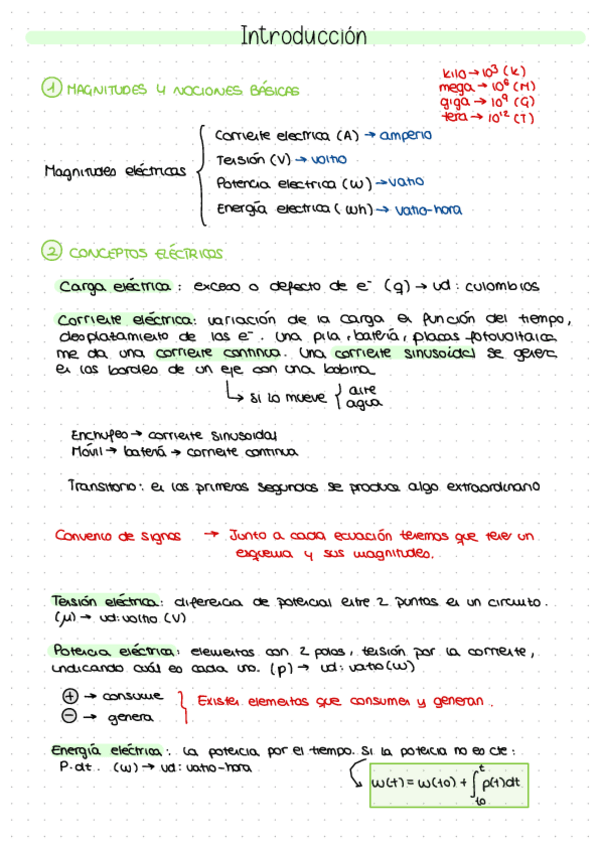 Introducción
① MAGNITUDES Y NOCIONES BÁSICAS
kilo → 10³ (K)
mega → 10⁶ (M)
giga → 10⁹ (G)
tera → 10¹² (T)
Magnitudes eléctricas
Corriente electrica (A) → amperio
Tensión (V) → voltio
Potencia electrica (W) → vatio
Energía electrica (Wh) → vatio-hora
② CONCEPTOS ELÉCTRICOS
Carga eléctrica: exceso o defecto de e⁻ (q) → ud: culombios
Corriente eléctrica: variación de la carga en función del tiempo,
desplatamiento de las e⁻. Una pila, batería, placas fotovoltaica
me da una corriente continua. Una corriente sinusoidal se genera
en los bordes de un eje con una bobina
↳ si lo mueve { aire
agua
Enchufeo → corriente sinusoidal
Móvil → batería → corriente continua
Transitorio: en los primeros segundos se produce algo extraordinario
Convenio de signos → Junto a cada ecuación tenemos que tener un
esquema y sus magnitudes.
Tensión eléctrica: diferencia de potencial entre 2 puntos en un circuito.
(μ) → ud: voltio (V)
Potencia eléctrica: elementos con 2 polos, tensión por la corriente,
indicando cuál es cada uno. (p) → ud: vatio (W)
⊕ → consume
⊖ → genera
Existen elementos que consumen y generan.
Energía eléctrica: La potencia por el tiempo. Si la potencia no es cte:
P·dt. (W) → ud: vatio-hora
w(t) = w(t0) + ∫ₜ₀ᵗ p(t)dt